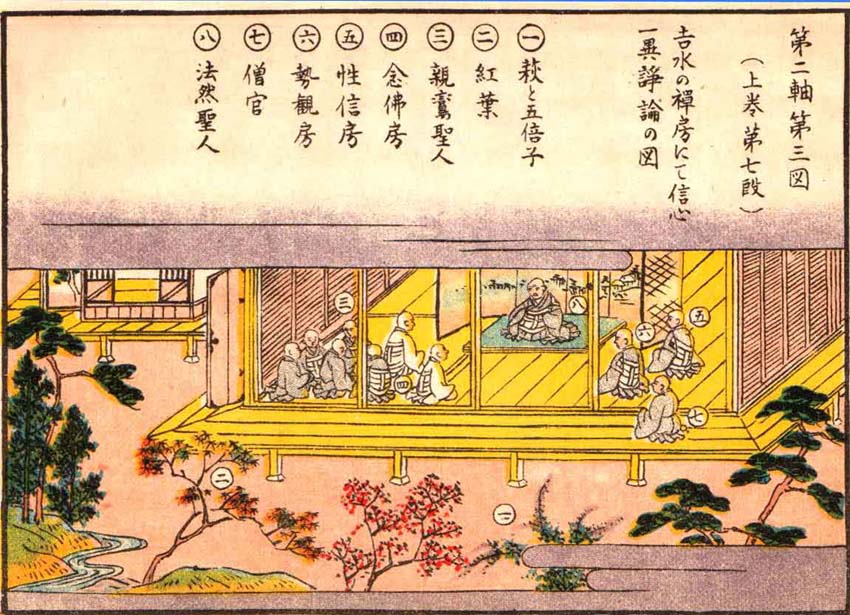 第二軸第三図
（上巻第七段）
吉水の禅房にて信心
一異諍論の図
一 萩と五倍子
二 紅葉
三 親鸞聖人
四 念佛房
五 性信房
六 勢観房
七 僧官
八 法然聖人
三
八
五
六
四
七
二
一